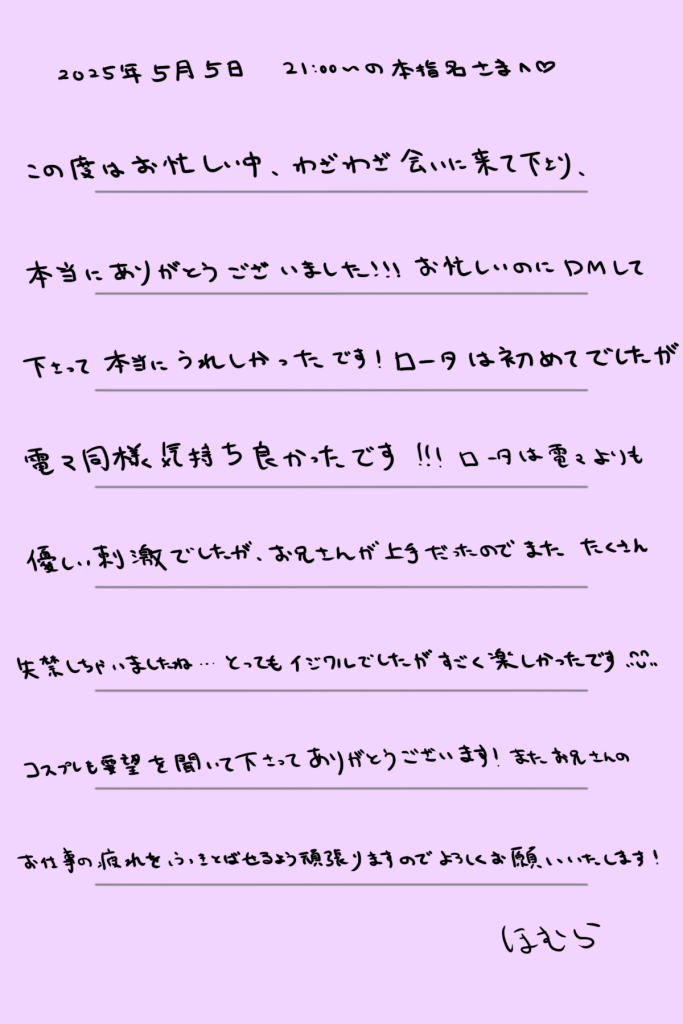 2025年5月5日 21:00〜の本指名さまへ♡
この度はお忙しい中、わざわざ会いに来て下さり、
本当にありがとうございました!!! お忙しいのにDMして
下さって本当にうれしかったです!ロータは初めてでしたが
電マ同様気持ち良かったです!!!ロータは電マよりも
優しい刺激でしたが、お兄さんが上手だったのでまたたくさん
失禁しちゃいましたね…とってもイジワルでしたがすごく楽しかったです
コスプレも要望を聞いて下さってありがとうございます!またお兄さんの
お仕事の疲れをふきとばせるよう頑張りますのでよろしくお願いいたします!
ほむら